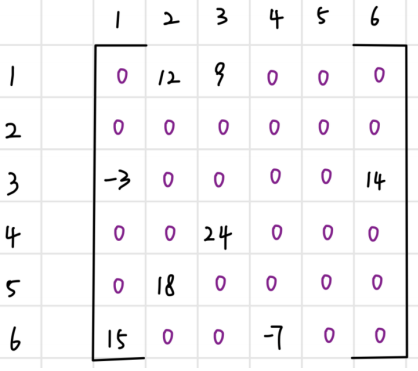 1 2 3 4 5 6
1 0 12 9 0 0 0
2 0 0 0 0 0 0
3 -3 0 0 0 0 14
4 0 0 24 0 0 0
5 0 18 0 0 0 0
6 15 0 0 -7 0 0